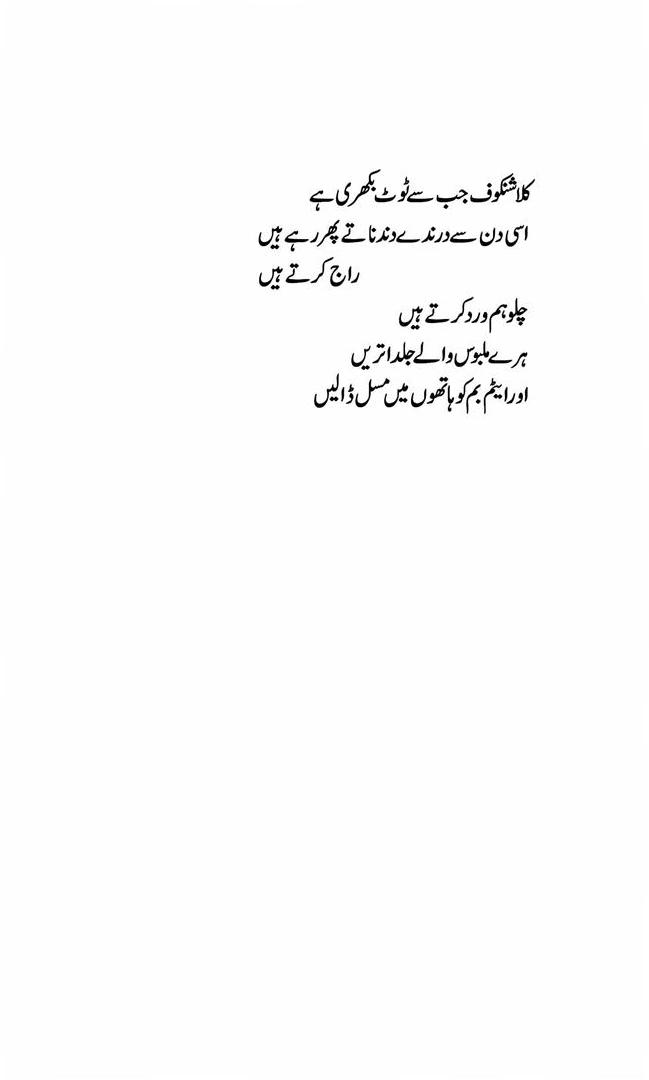 کلاشنکوف جب سے ٹوٹ بکھری ہے
اسی دن سے درندے دندناتے پھر رہے ہیں
راج کرتے ہیں
چلو ہم ورد کرتے ہیں
ہرے ملبوس والے جلد اتریں
اور ایٹم بم کو ہاتھوں میں مسل ڈالیں